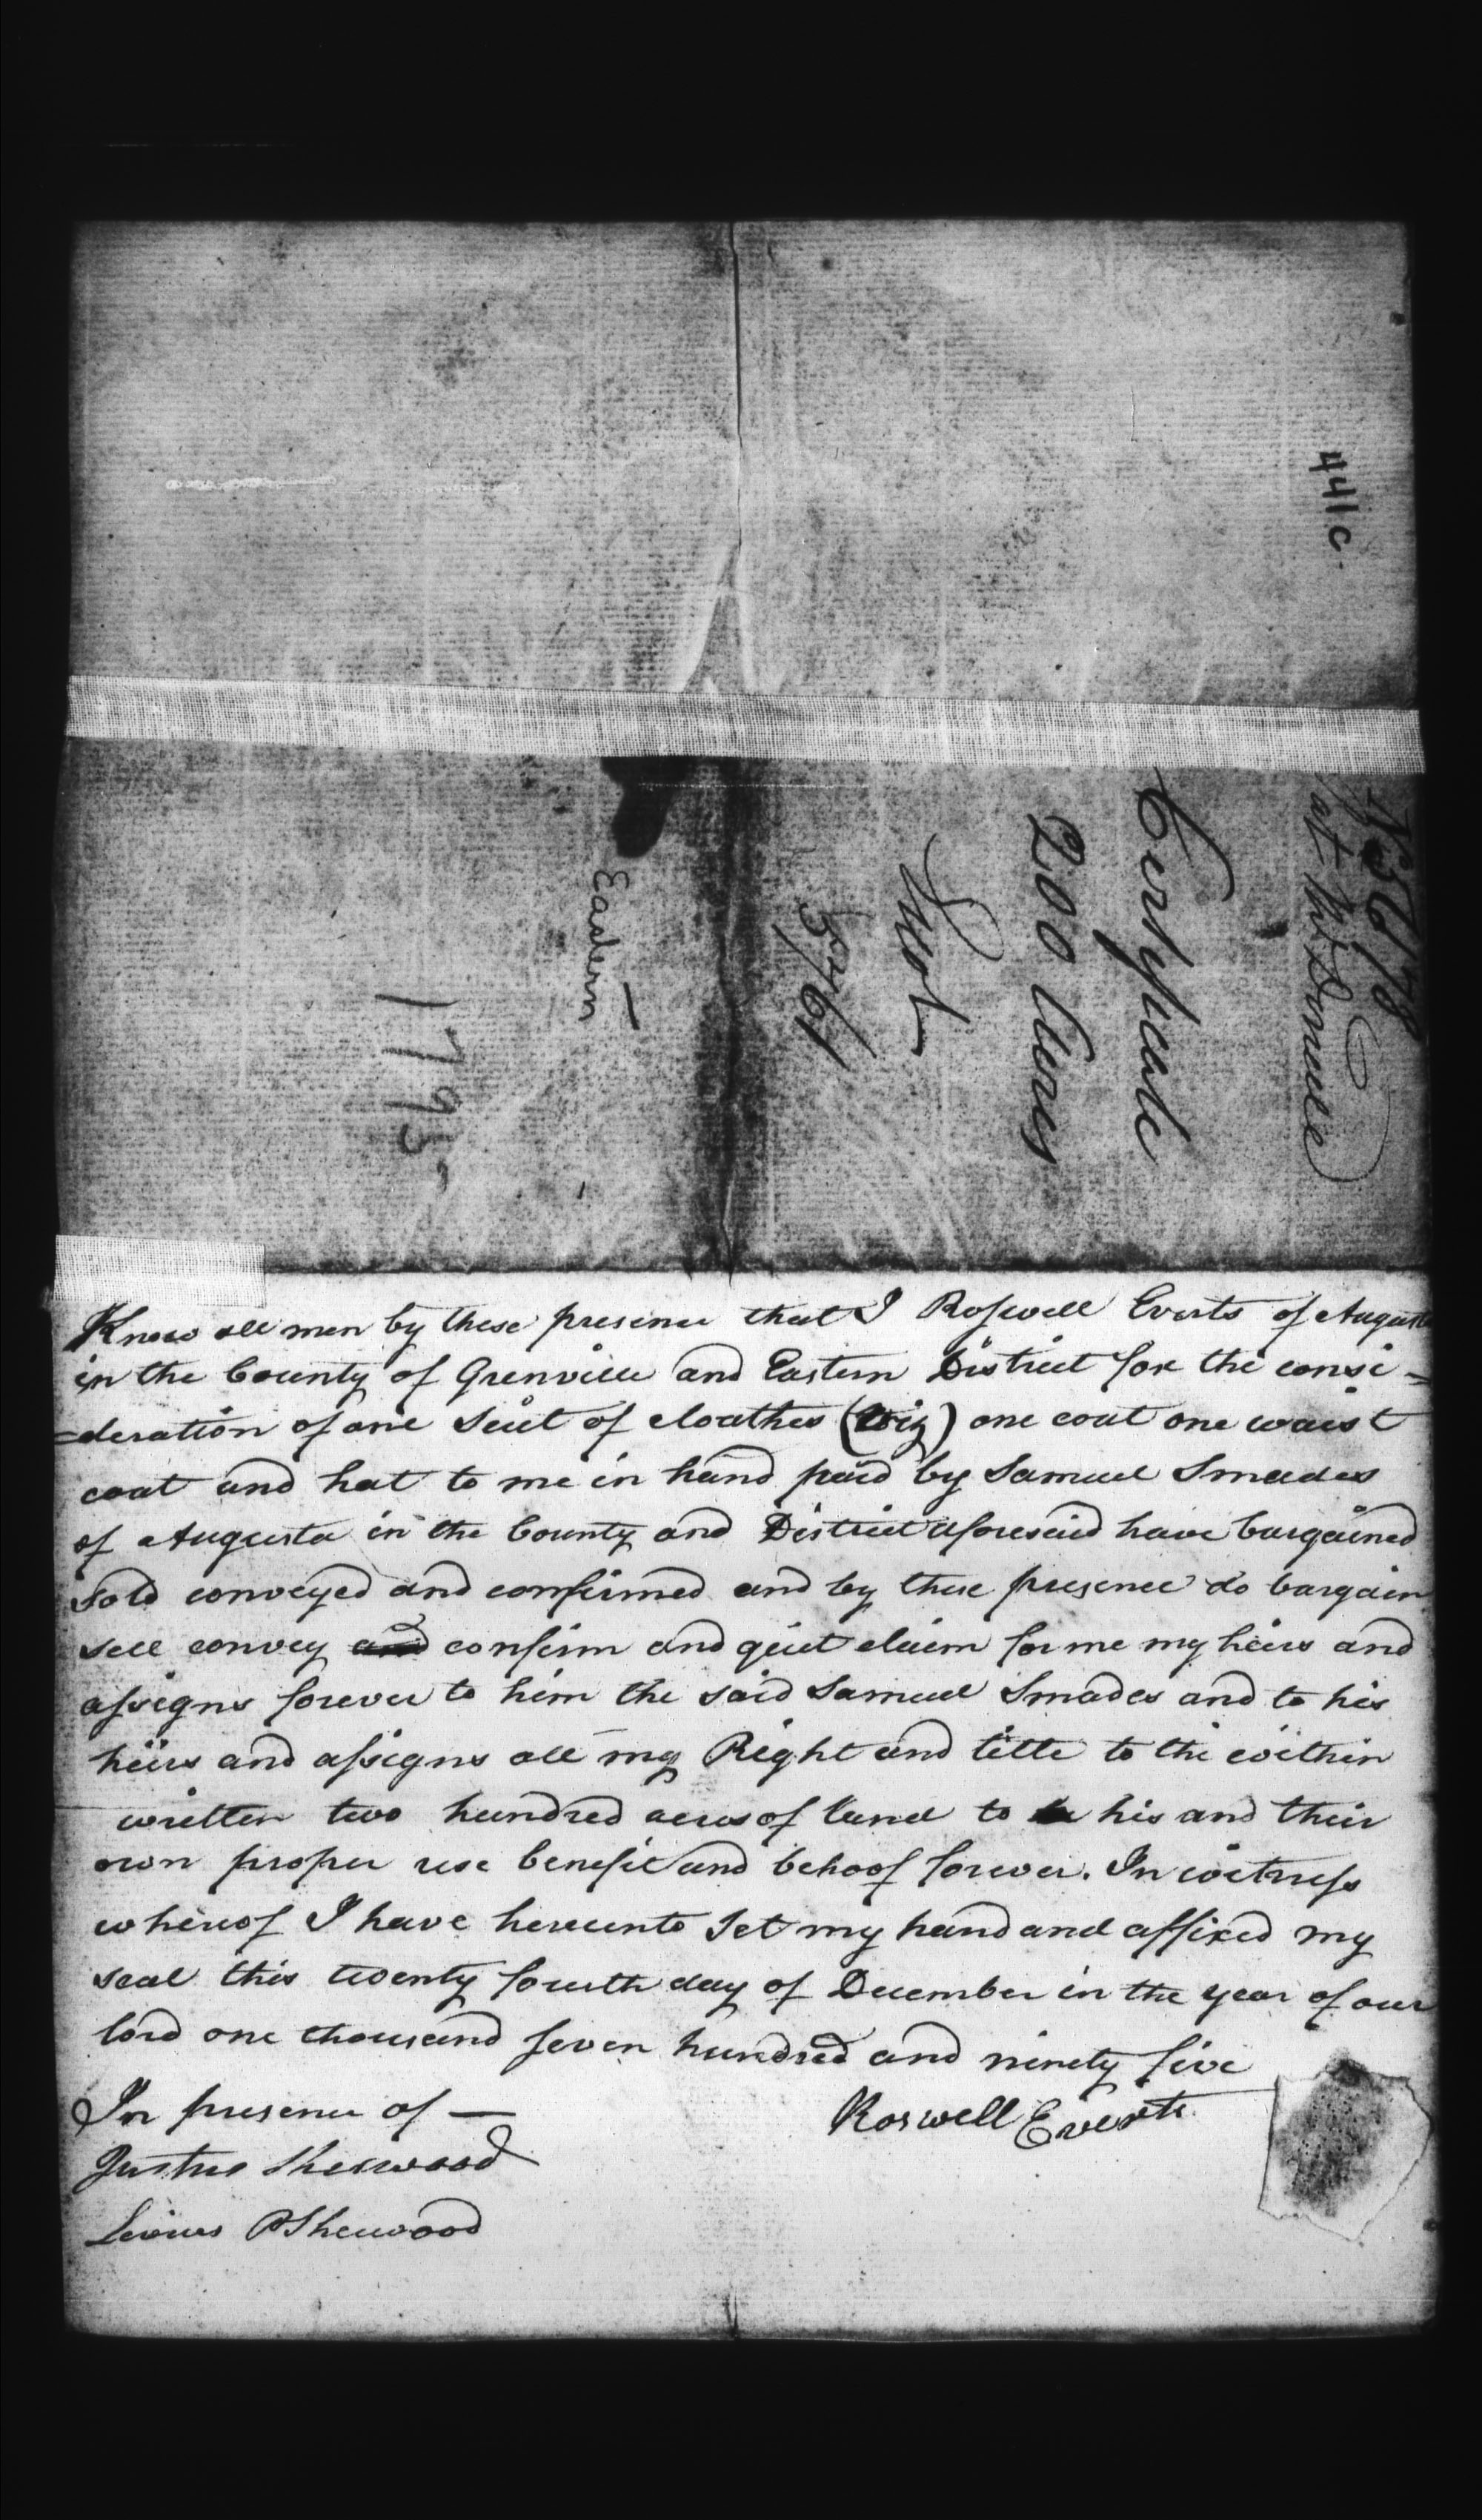 441c
Certificate
200 Acres
Eastern
1795
Know all men by these presence that I Roswell Everts of Augusta
in the County of Grenville and Eastern District for the consi=
=deration of one Suit of cloathes (viz) one coat one waist
coat and hat to me in hand paid by Samuel Smades
of Augusta in the County and District aforesaid have bargained
Sold conveyed and confirmed and by these presence do bargain
sell convey and confirm and quit claim for me my heirs and
assigns forever to him the said Samuel Smades and to his
heirs and assigns all my Right and title to the within
written two hundred acres of land to his and their
own proper use benefit and behoof forever. In witness
whereof I have hereunto Set my hand and affixed my
seal this twenty fourth day of December in the year of our
lord one thousand seven hundred and ninety five
In presence of —
Roswell Everts
Justus Sherwood
Livius P Sherwood